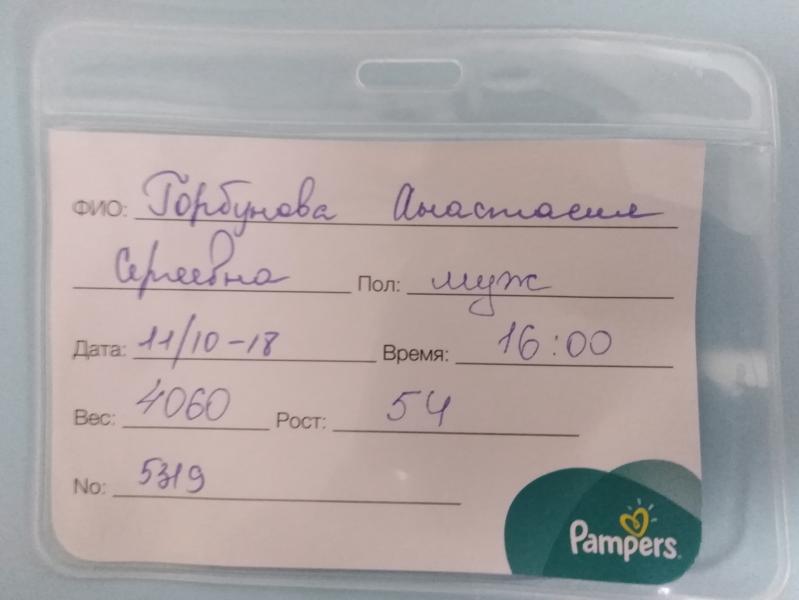 ФИО: Горбунова Анастасия
Сергеевна Пол: муж
Дата: 11/10-18 Время: 16:00
Вес: 4060 Рост: 54
No: 5319
Pampers